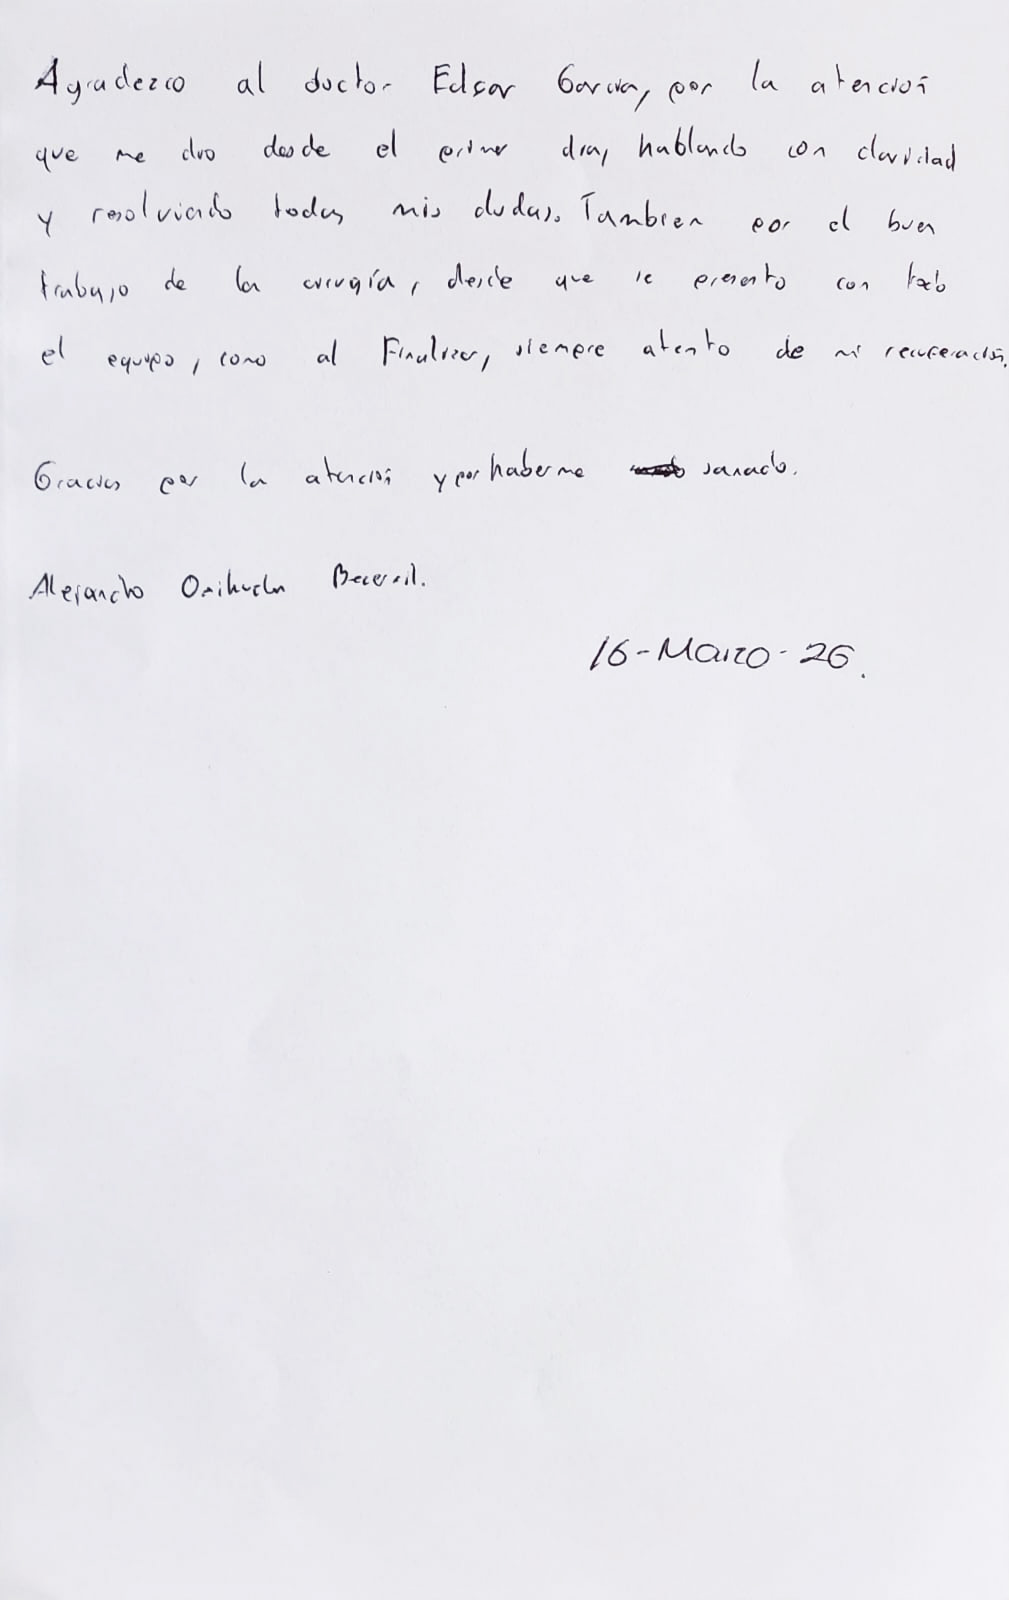 Agradezco al doctor Edgar Garcia, por la atención
que me dio desde el primer dia, hablando con claridad
y resolviendo todas mis dudas. Tambien por el buen
trabajo de la cirugía, desde que se presento con todo
el equipo, como al Finalizar, siempre atento de mi recuperación.
Gracias por la atención y por haberme sanado.
Alejandro Orihuela Becerril.
16-Marzo-26.